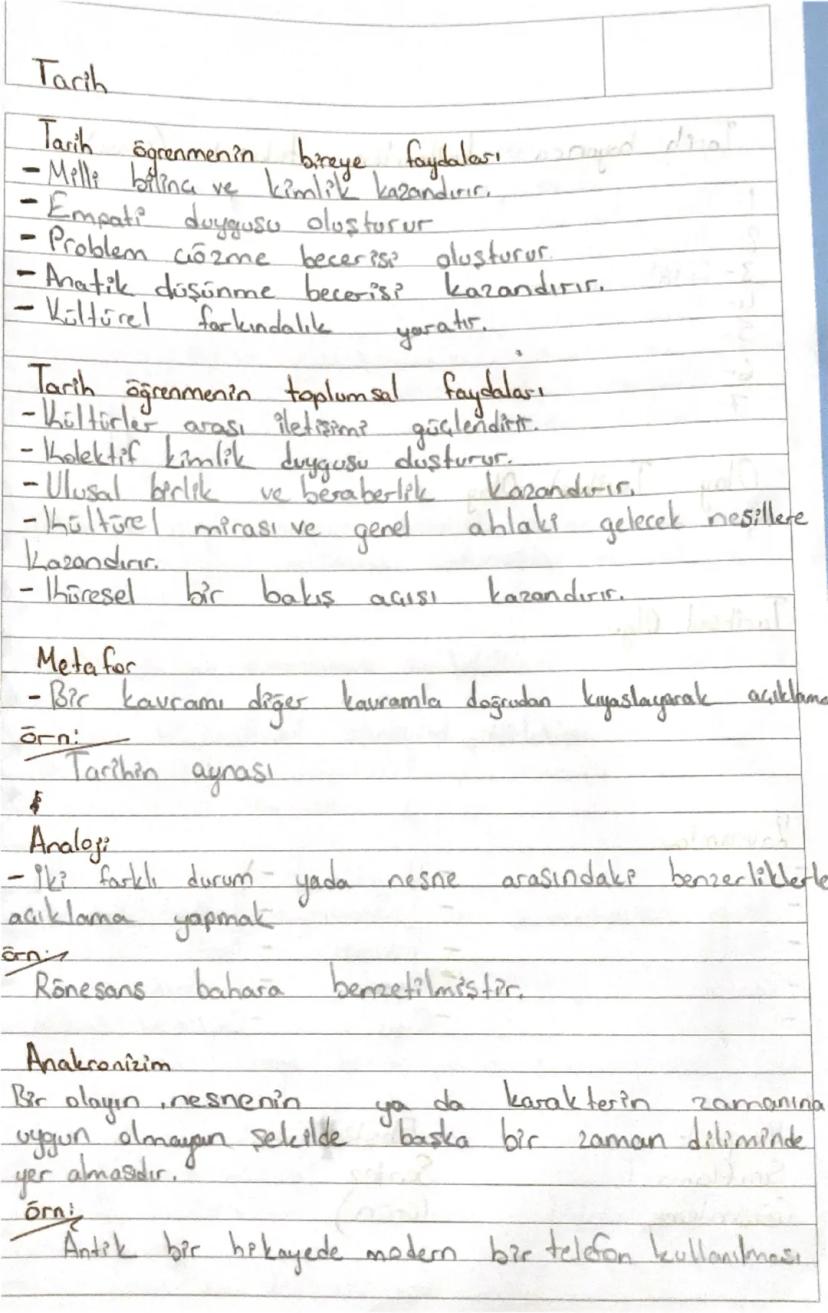 Tarih
Tarih ögrenmenin bireye faydaları
- Milli bilinç ve kimlik kazandırır.
- Empati duygusu oluşturur
- Problem çözme becerisi oluşturur.
- Anatik düşünme becerisi kazandırır.
- Kültürel farkındalık yaratır.
Tarih öğrenmenin toplumsal faydaları
- Kültürler arası iletişimi güçlendirir.
- Kolektif kimlik duygusu duşturur.
- Ulusal birlik ve beraberlik kazandırır.
- Kültürel mirası ve genel ahlaki gelecek nesillere
kazandırır.
- Küresel bir bakış açısı kazandırır.
Metafor
- Bir kavramı diğer kavramla doğrudan kıyaslayarak açıklama
örn:
Tarihin aynası
Analoji
- iki farklı durum yada nesne arasındaki benzerliklerle
açıklama yapmak
örn:
Rönesans bahara benzetilmiştir.
Anakronizim
Bir olayın, nesnenin ya da karakterin zamanına
uygun olmayan şekilde başka bir zaman diliminde
yer almasıdır.
örn:
Antik bir hikayede modern bir telefon kullanılması